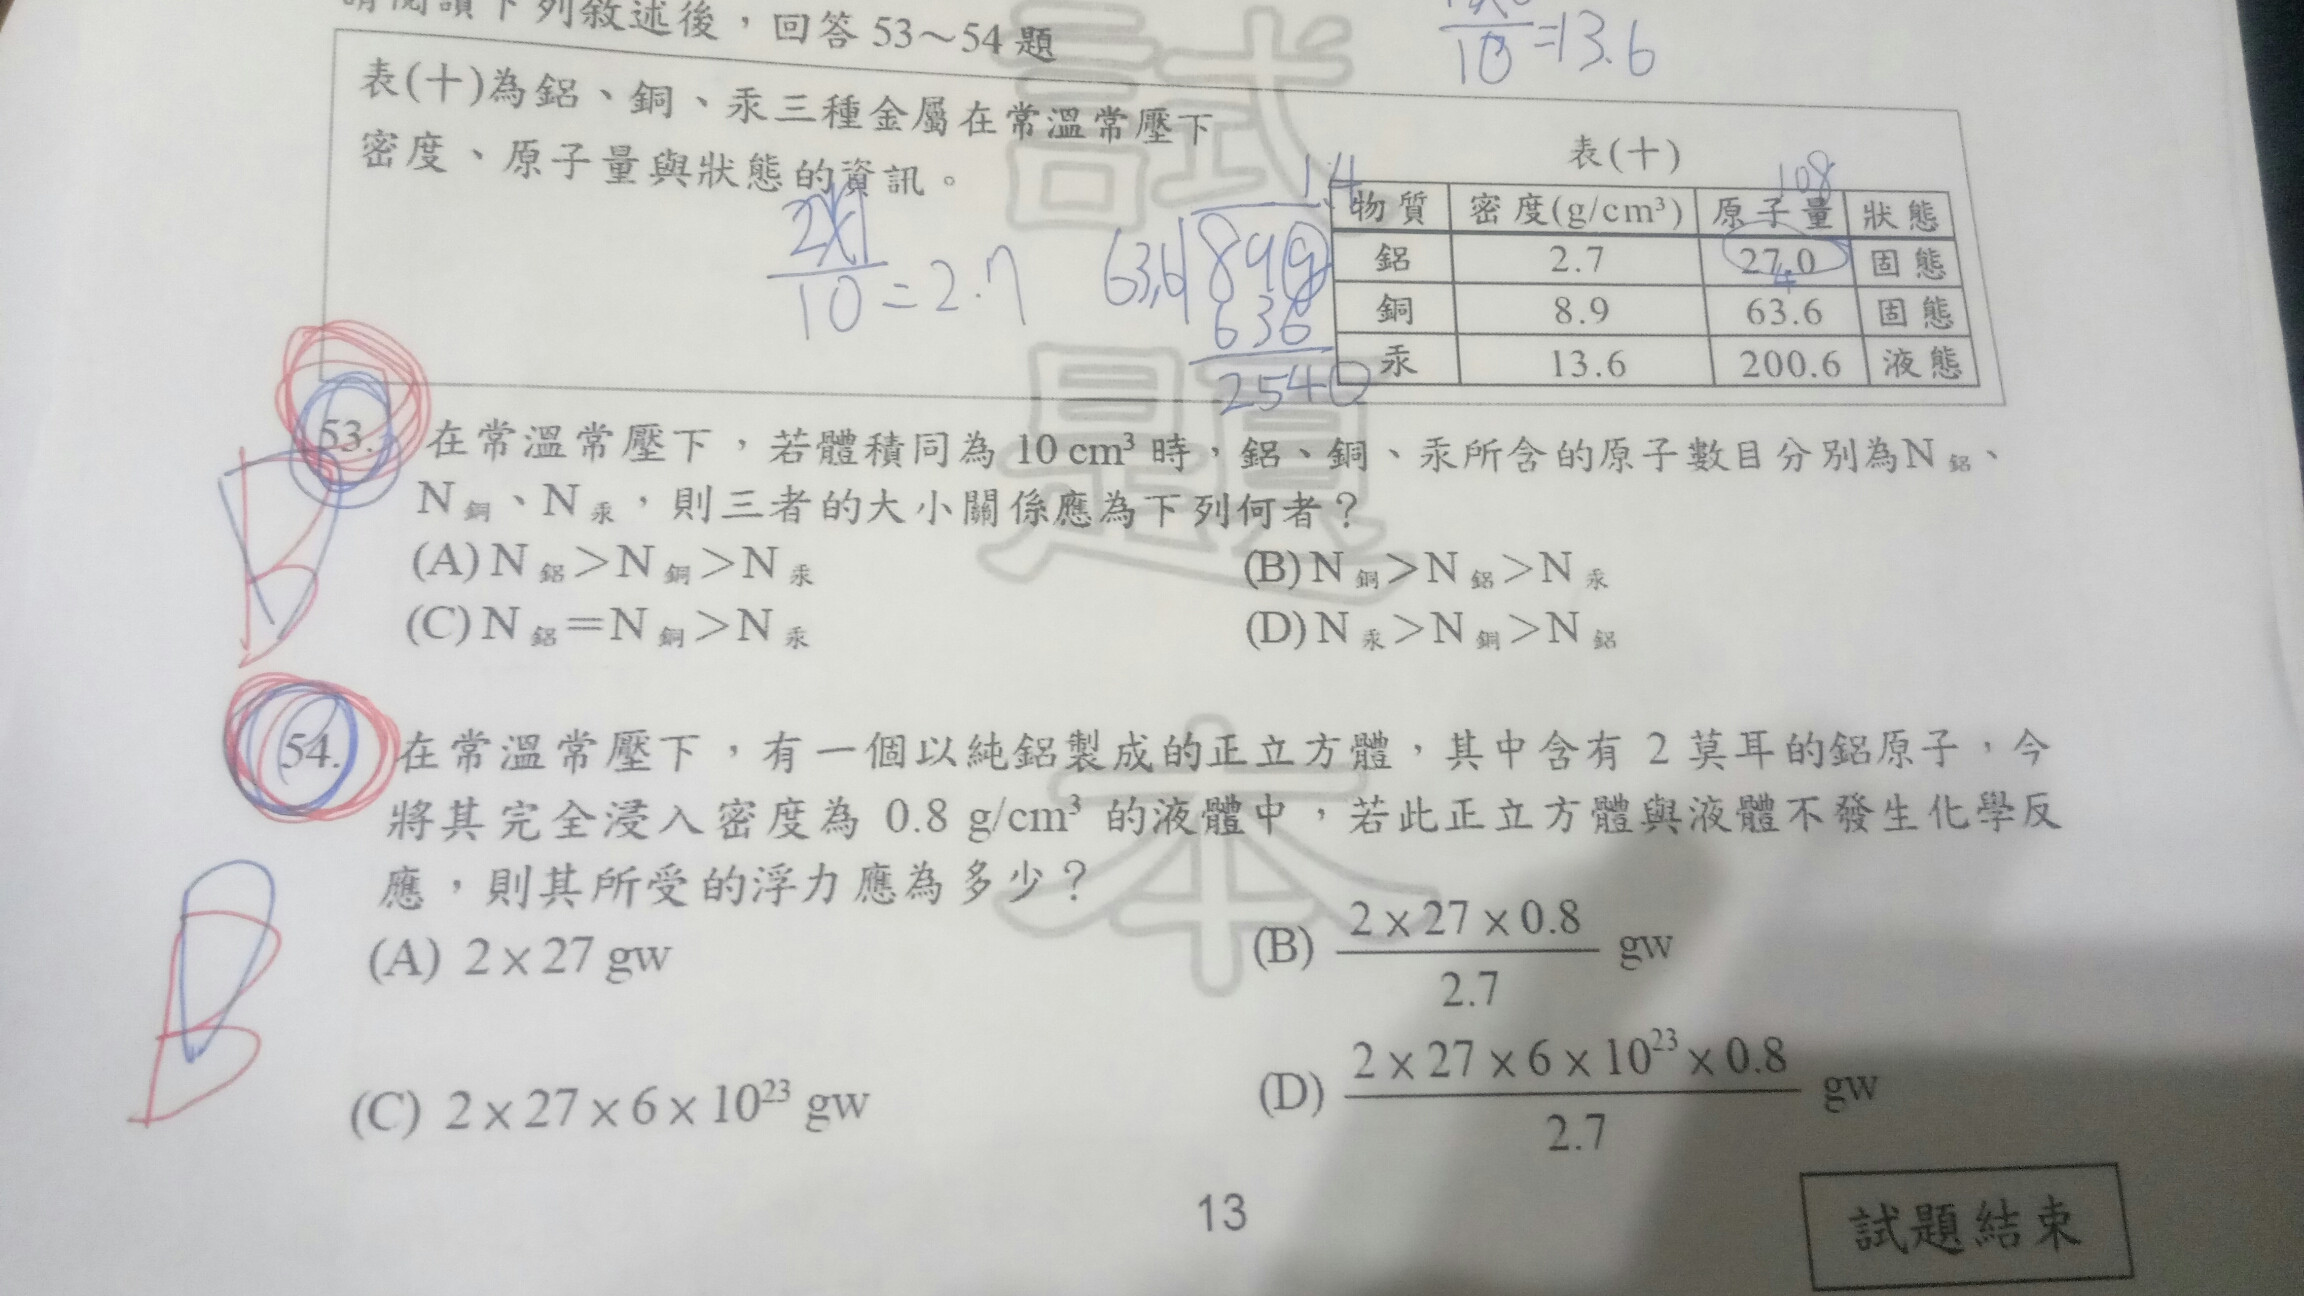 請閱讀下列敘述後，回答 53～54 題
10 =13.6
表(十)為鋁、銅、汞三種金屬在常溫常壓下
密度、原子量與狀態的資訊。
表(十)
108
物質 密度(g/cm³) 原子量 狀態
鋁 2.7 27.0 固態
銅 8.9 63.6 固態
汞 13.6 200.6 液態
10 =2.7
1.4
63.6 899
636
2540
53. 在常溫常壓下，若體積同為 10 cm³ 時，鋁、銅、汞所含的原子數目分別為N鋁、
N銅、N汞，則三者的大小關係應為下列何者？
(A) N鋁>N銅>N汞 (B) N銅>N鋁>N汞
(C) N鋁=N銅>N汞 (D) N汞>N銅>N鋁
54. 在常溫常壓下，有一個以純鋁製成的正立方體，其中含有 2 莫耳的鋁原子，今
將其完全浸入密度為 0.8 g/cm³ 的液體中，若此正立方體與液體不發生化學反
應，則其所受的浮力應為多少？
(A) 2×27 gw (B) 2×27×0.8 / 2.7 gw
(C) 2×27×6×10²³ gw (D) 2×27×6×10²³×0.8 / 2.7 gw
B
13
試題結束
試題本